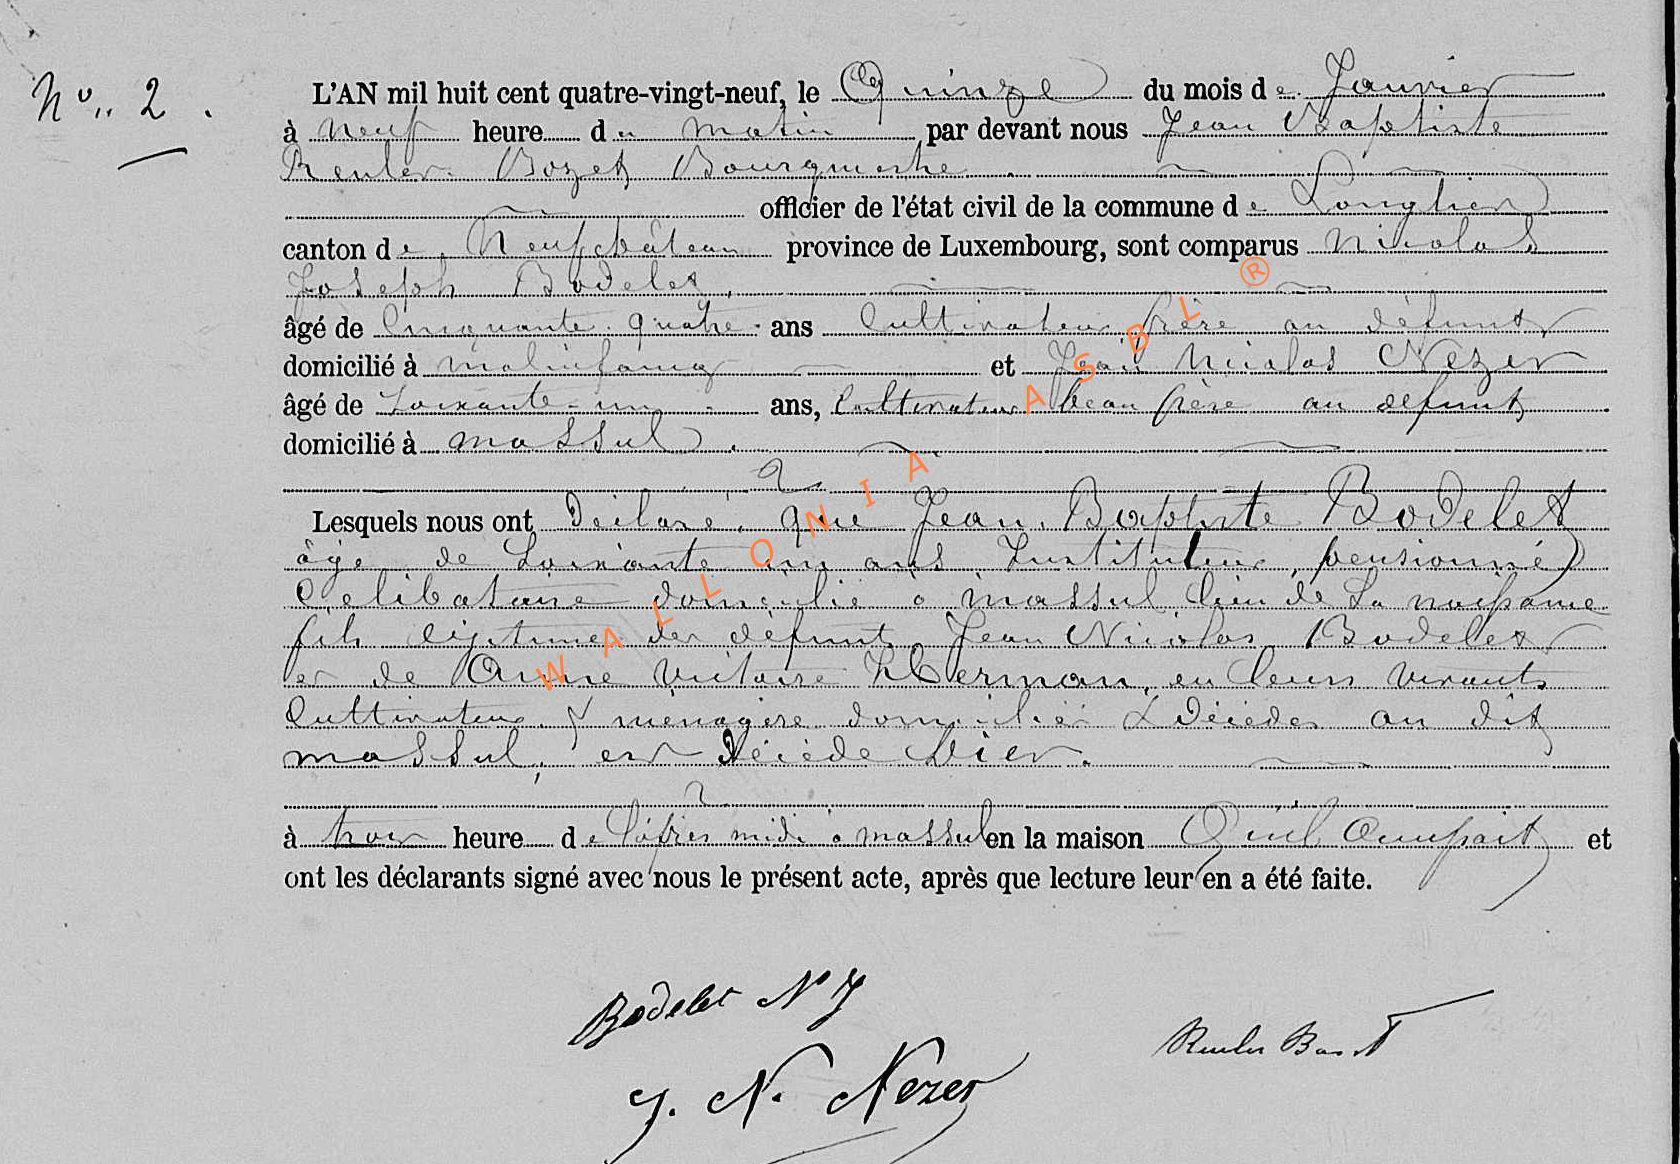 N° 2.
L'AN mil huit cent quatre-vingt-neuf, le Quinze du mois de Janvier
à neuf heure du matin par devant nous Jean Baptiste
Reuler Bozet Bourgmestre
officier de l'état civil de la commune de Longlier
canton de Neufchâteau province de Luxembourg, sont comparus Nicolas
Joseph Bodelet,
âgé de Cinquante quatre ans Cultivateur frère au défunt
domicilié à molinfaing et Jean Nicolas Nezer
âgé de Soixante un ans, Cultivateur beau frère au défunt
domicilié à massul.
Lesquels nous ont Déclaré que Jean Baptiste Bodelet
âgé de Soixante un ans Instituteur pensionné
Célibataire domicilié à massul lieu de Sa naissance
fils légitime des défunts Jean Nicolas Bodelet
et de Anne Victoire Herman, en leurs vivants
Cultivateur & ménagère domiciliés & Décédés au dit
massul, est Décédé hier.
à trois heure de l'après midi à massul en la maison Qu'il Occupait et
ont les déclarants signé avec nous le présent acte, après que lecture leur en a été faite.
Bodelet N J
J. N. Nezer
WALLONIA ASBL ®